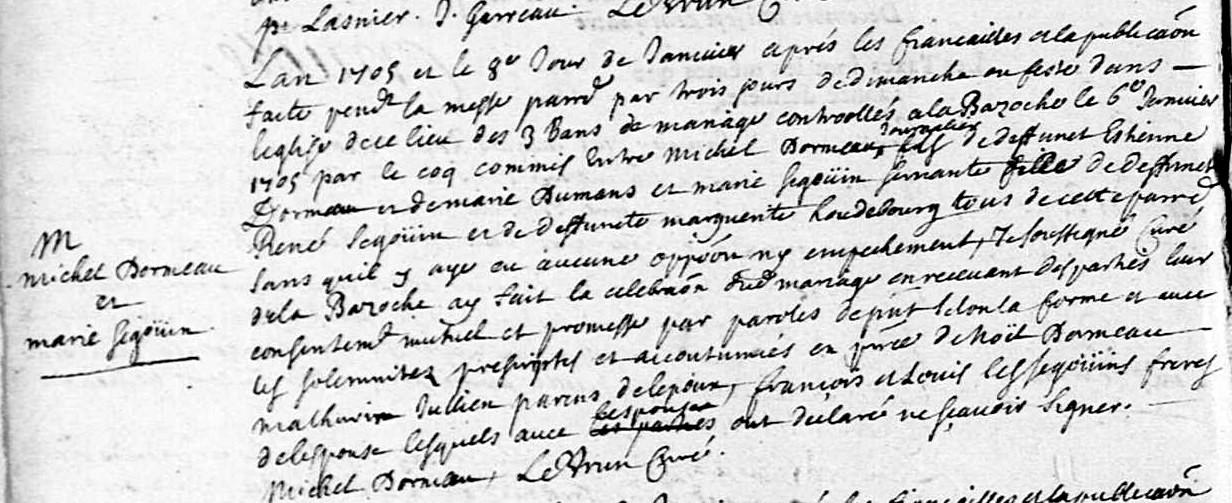 pre Lasnier. J. Garreau. LeBrun Curé
Lan 1705 et le 8e Jour de Januier aprés les francailles et la publicaôn
faite pendt la messe parroe par trois jours de dimanche ou feste dans
leglise de ce lieu des 3 Bans de mariage controollés a la Bazoche le 6e Januier
1705 par le coq commis Entre Michel Dormeau, Journalier fils de deffunct Estienne
Dormeau et de marie Dumans et marie segoüin seruante fille de deffunct
René segoüin et de deffuncte marguerite houdebourg tous de cette parroe
sans quil y aye eu aucune oppôon ny empechement, Je soussigné Curé
de la Bazoche ay fait la celebraôn dud mariage en receuant des parties leur
consentemt mutuel et promesse par paroles de pnt selon la forme et auec
les solemnitez prescriptes et accoutumées en pnce de Noël Dormeau
mathurin Jullien parens de lepoux, francois et Louis les segoüins freres
de lespouse lesquels auec lespouse les parties ont déclaré ne sçauoir signer.
Michel Dormeau, LeBrun Curé.
M
Michel Dormeau
et
marie segoüin
francailles et la publicaôn